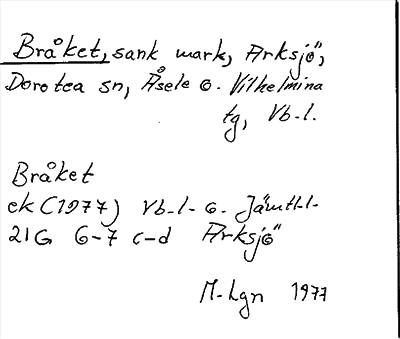 Bråket, sank mark, Arksjö,
Dorotea sn, Åsele o. Vilhelmina
tg, Vb-l.
Bråket
ek (1977) Vb-l- o. Jämtl-l-
21G 6-7 c-d Arksjö
M-Lgn 1977